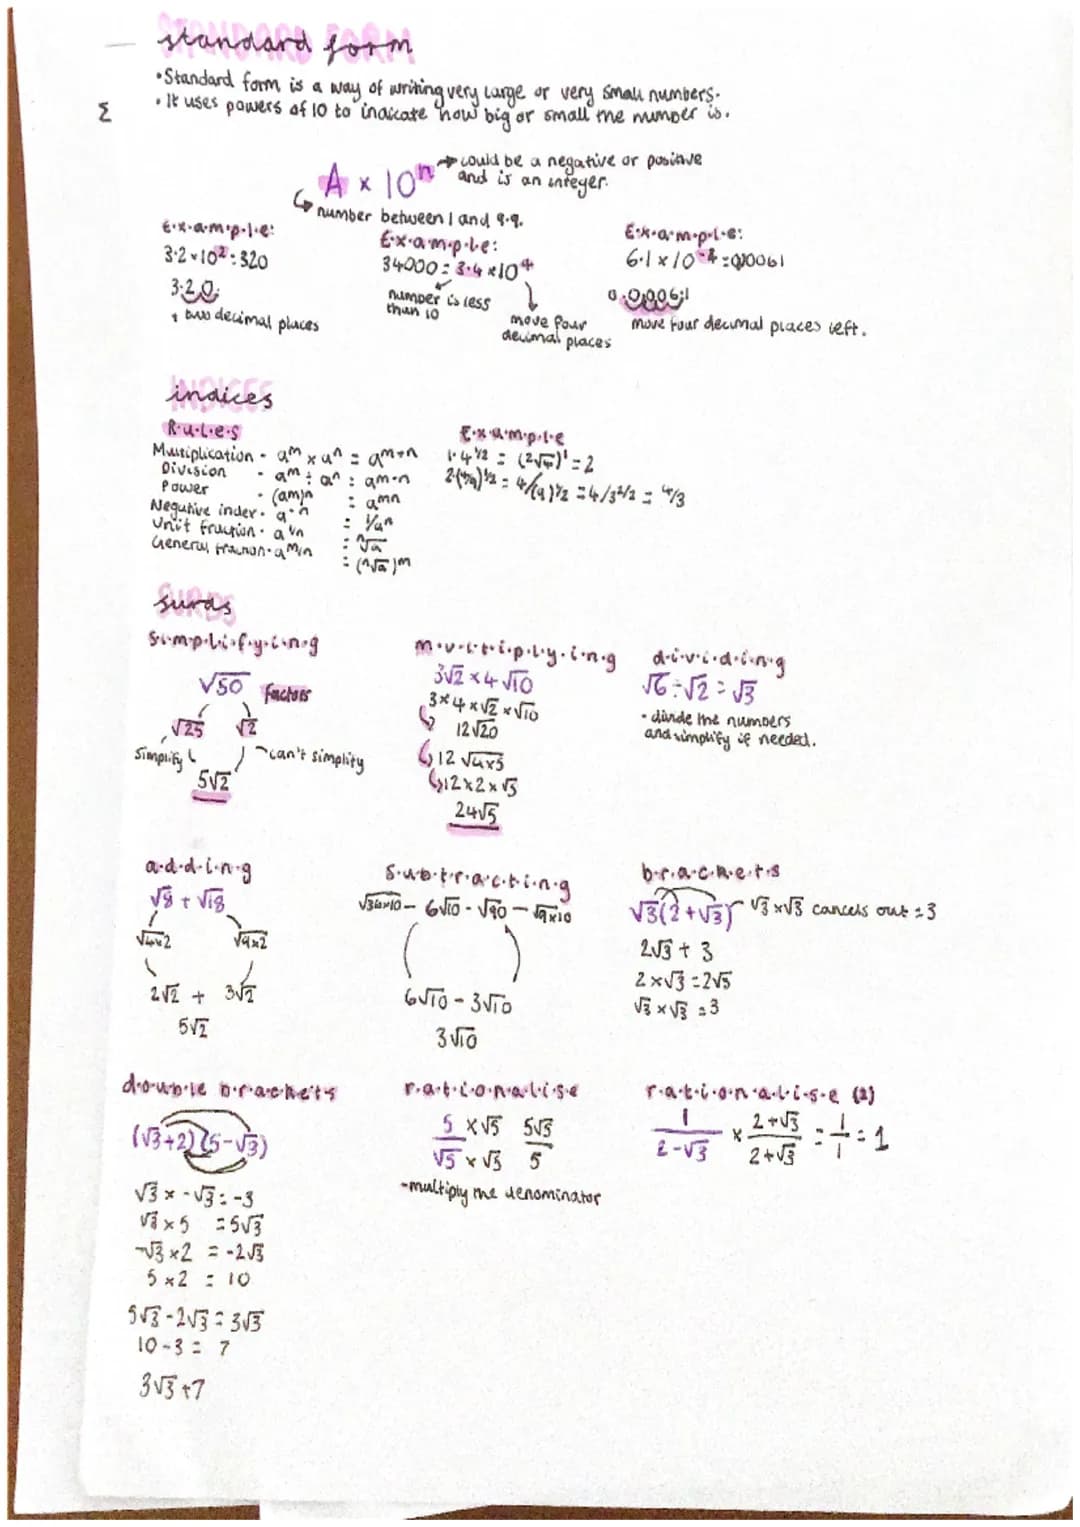 standard form
•Standard form is a way of writing very large or very small numbers.
•It uses powers of 10 to indicate how big or small the number is.
Σ
A × 10ⁿ
could be a negative or positive
and is an integer.
number between 1 and 9.9.
E·x·a·m·p·l·e:
3·2×10²=320
3·2 0.
two decimal places
E·x·a·m·p·l·e:
34000 = 3·4×10⁴
number is less
than 10
move four
decimal places
E·x·a·m·p·l·e:
move four decimal places left.
indices
R·u·l·e·s
Multiplication - aᵐ × aⁿ = aᵐ⁺ⁿ
Division - aᵐ ÷ aⁿ = aᵐ⁻ⁿ
Power - (aᵐ)ⁿ = aᵐⁿ
Negative index - a⁻ⁿ = 1/aⁿ
Unit fraction - a¹/ⁿ = ⁿ√a
General fraction - aᵐ/ⁿ = (ⁿ√a)ᵐ
E·x·a·m·p·l·e
1·4^1/2 = (²√4)¹ = 2
surds
s·i·m·p·l·i·f·y·i·n·g
√50 factors
√25 √2
simplify can't simplify
5√2
m·u·l·t·i·p·l·y·i·n·g
3√2 × 4√10
3×4×√2×√10
12√20
12√4×5
12×2×√5
24√5
d·i·v·i·d·i·n·g
√6÷√2=√3
• divide the numbers
and simplify if needed.
a·d·d·i·n·g
√8 + √18
√4×2 √9×2
2√2 + 3√2
5√2
s·u·b·t·r·a·c·t·i·n·g
√36×10 – 6√10 - √90 – √9×10
6√10 - 3√10
3√10
b·r·a·c·k·e·t·s
√3(2+√3) √3×√3 cancels out =3
2√3 + 3
2×√3=2√5
√3×√3=3
d·o·u·b·l·e b·r·a·c·k·e·t·s
(√3+2)(5-√3)
√3×-√3=-3
√3×5 =5√3
-√3×2 =-2√3
5×2 = 10
5√3-2√3=3√3
10-3= 7
3√3+7
r·a·t·i·o·n·a·l·i·s·e
5 ×√5 5√5
√5 ×√5 5
-multiply the denominator
r·a·t·i·o·n·a·l·i·s·e (2)
1/2-√3 × 2+√3/2+√3 = 1/1 = 1